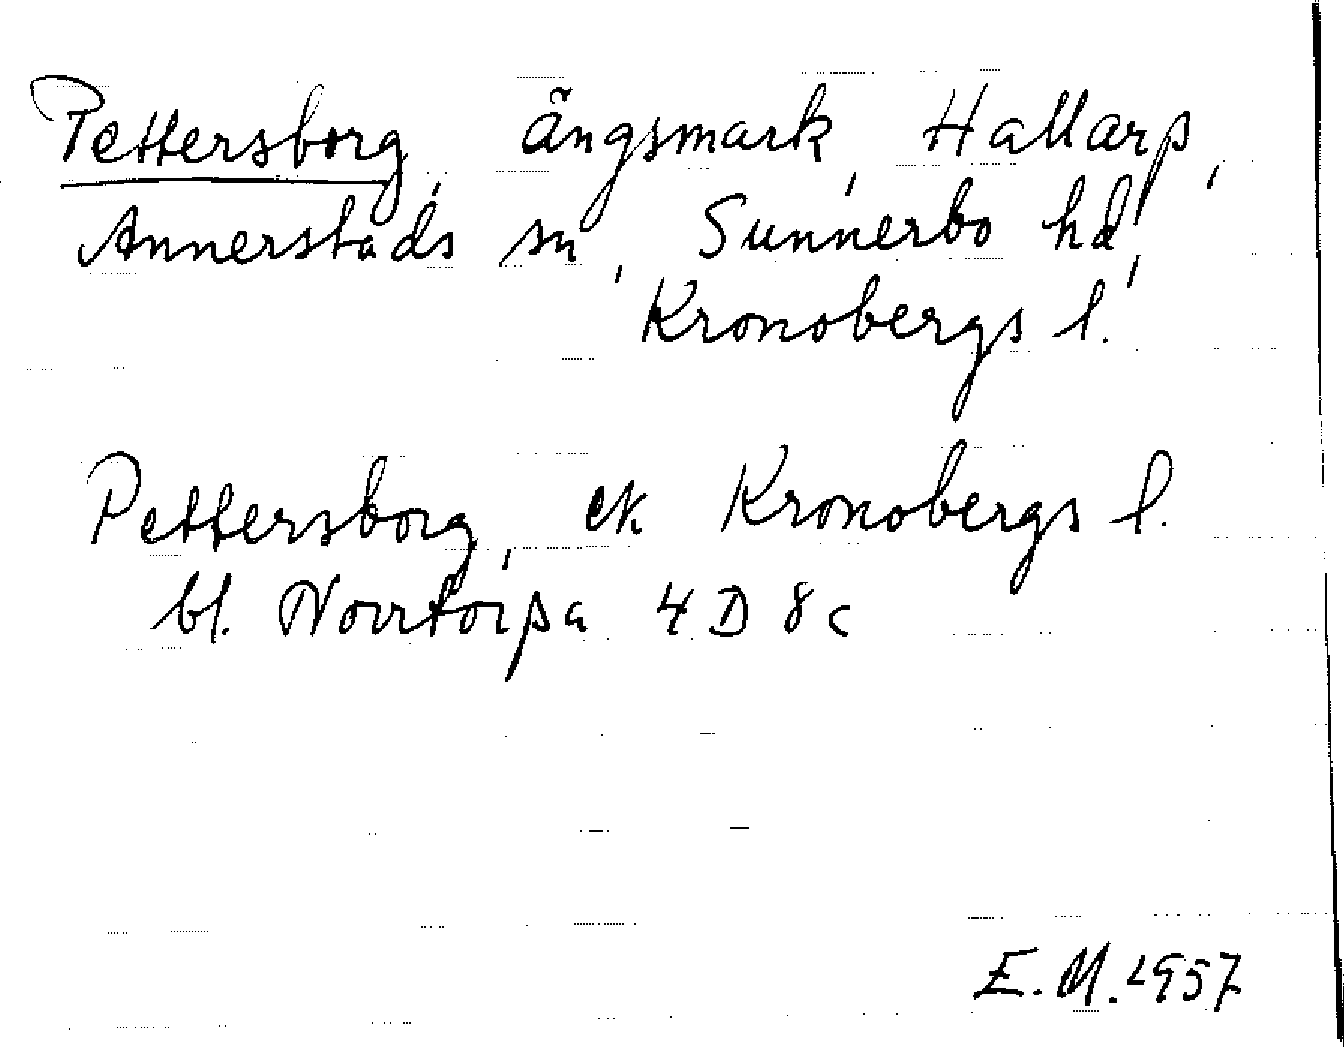 Pettersborg, ängsmark, Hallarp,
Annerstads sn, Sunnerbo hd,
Kronobergs l.
Pettersborg, ek Kronobergs l.
bl. Norrtorpa 4 D 8 c
E. M. 1957